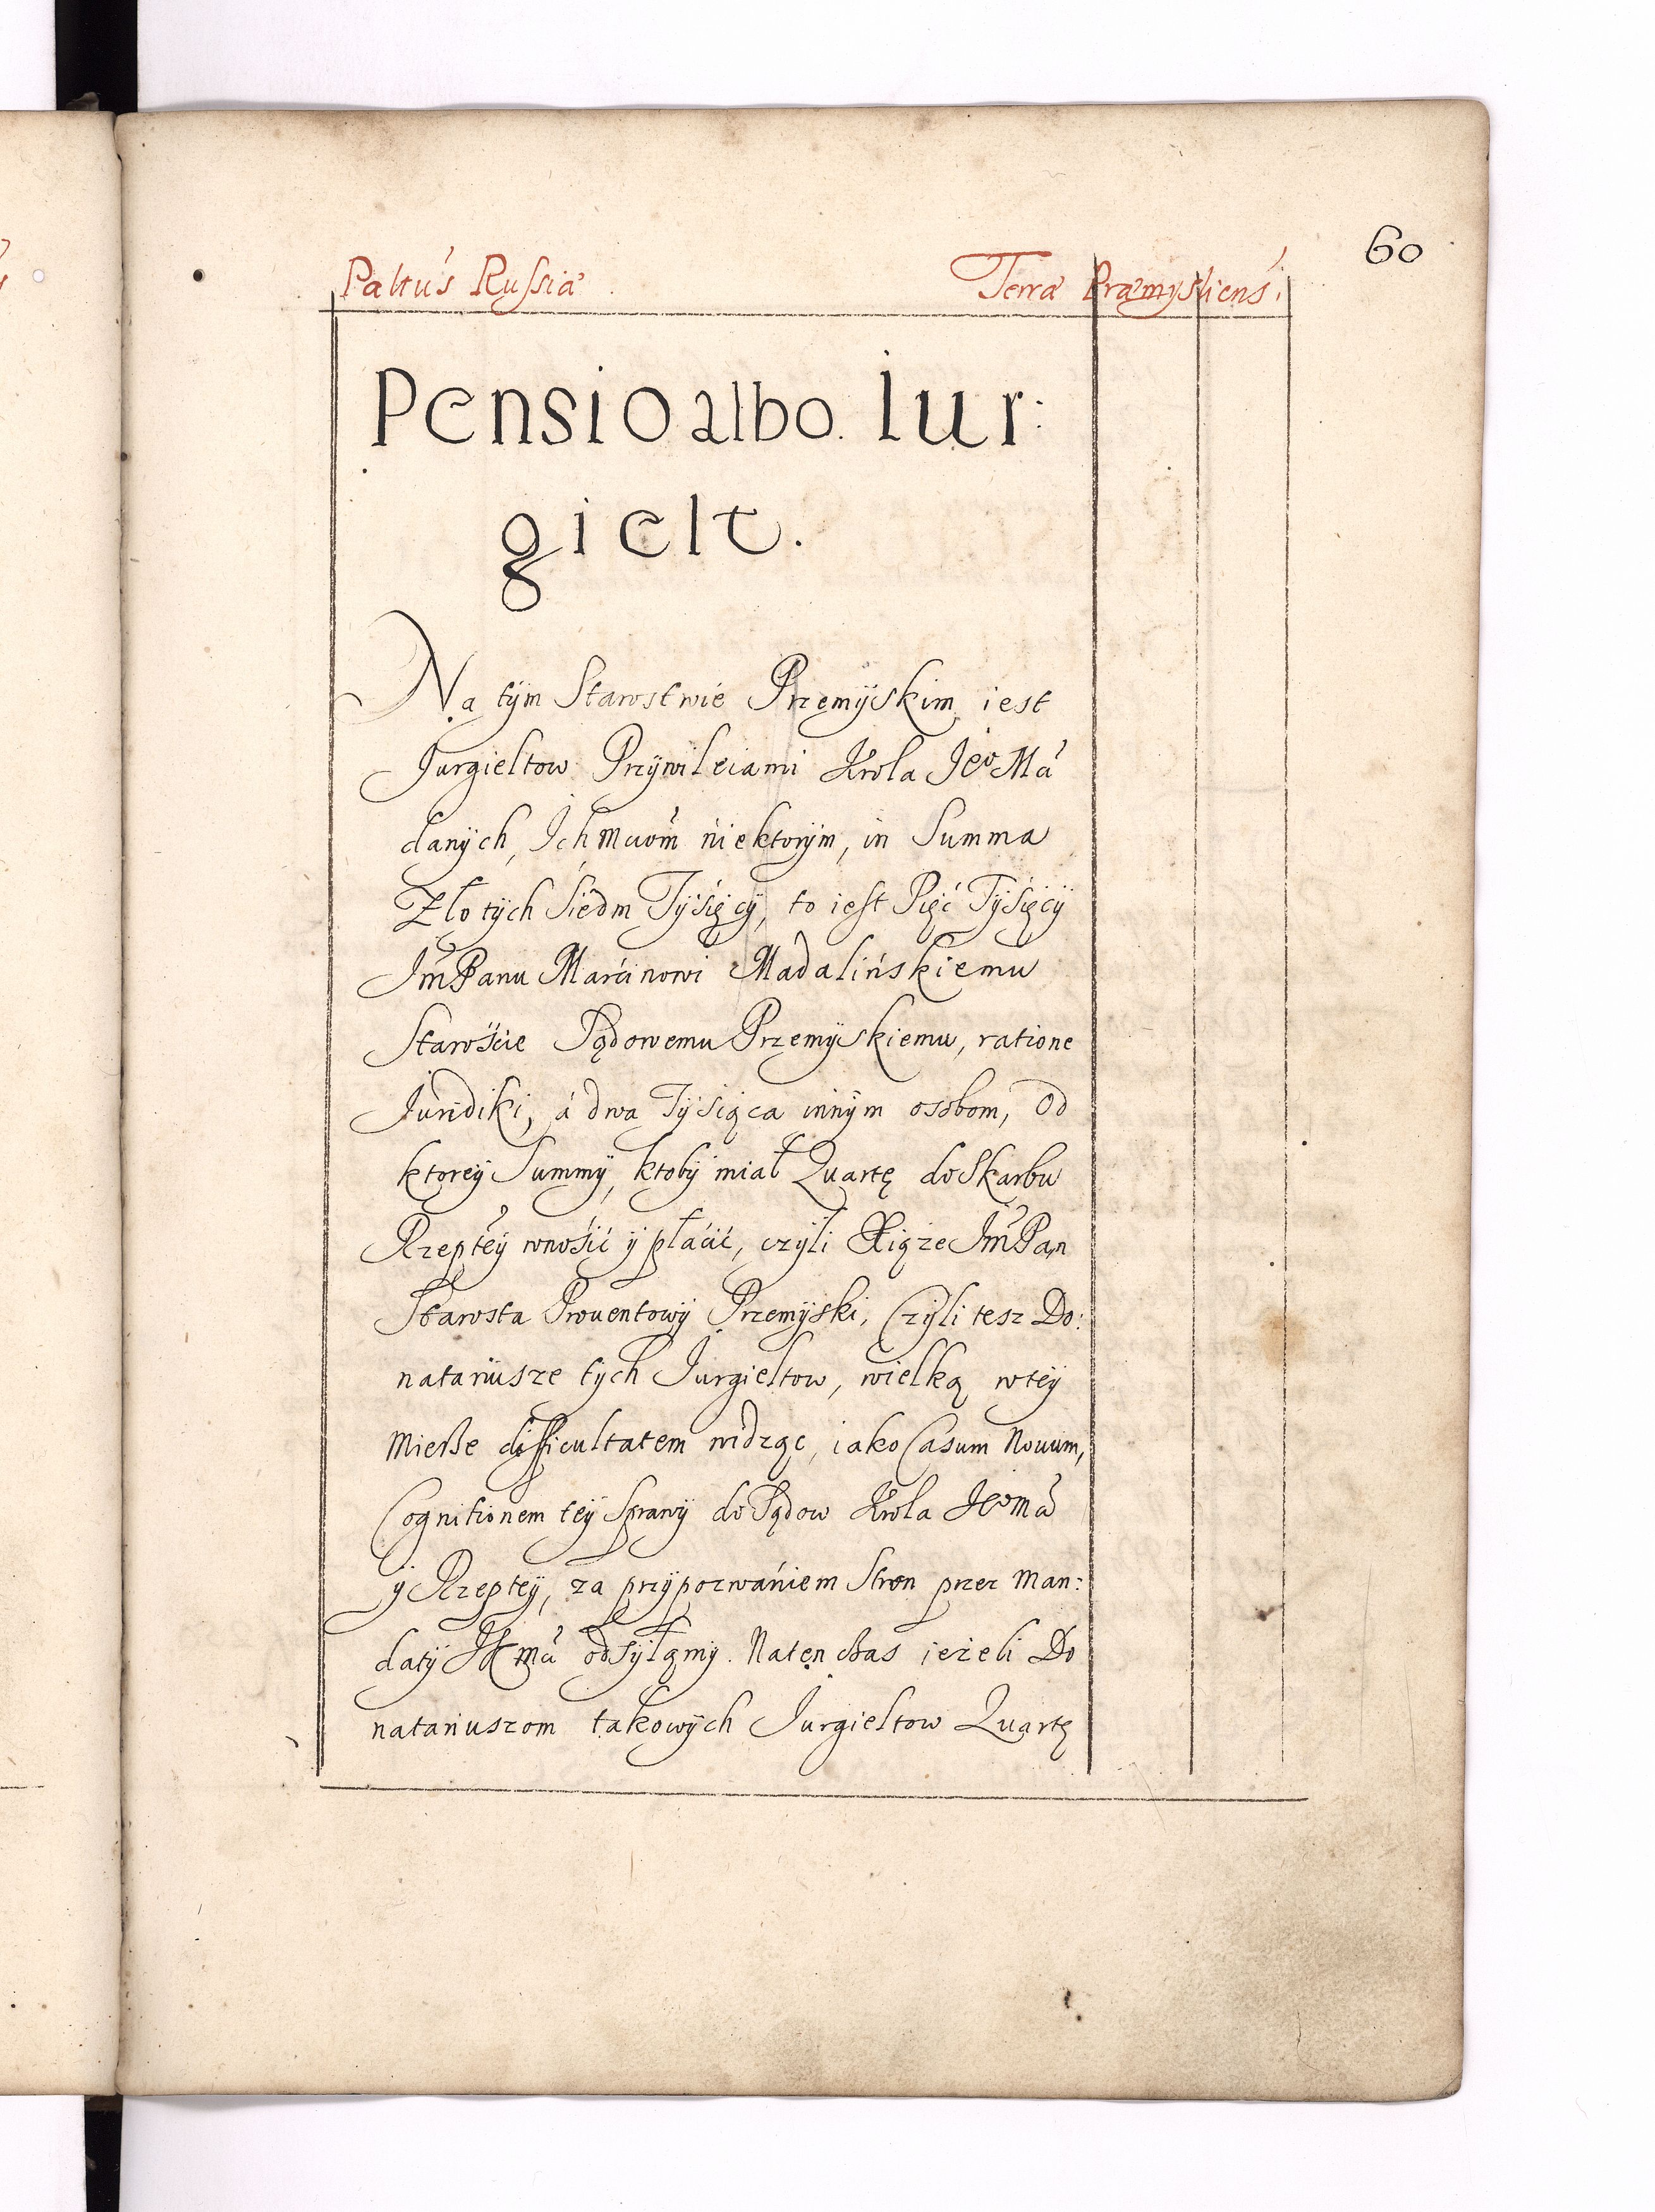 60
Pałtús Russiæ Terræ Præmysliens.
Pensio albo. Iur:
gielt.
Na tÿm Starostwie Przemÿskim iest
Jurgieltow Przÿwileiami Krola JeoMá
danÿch, Ichmciom niektorÿm, in Summa
Złotÿch Siedm Tÿsięcÿ, to iest Pięć Tÿsięcÿ
JmPanu Marcinowi Madalińskiemu
Starośćie Sądowemu Przemÿskiemu, ratione
Juridiki, á dwa Tÿsiąca innÿm osobom, Od
ktoreÿ Summÿ, ktobÿ miał Quartę do Skarbu
Rzepteÿ wnośić ÿ płácić, czÿli Xiąze JmPan
Starosta Prouentowÿ Przemÿski, Czÿli tesz Do:
natariusze tÿch Jurgieltow, wielką wteÿ
Mierße difficultatem widząc, iako Casum Nouum,
Cognitionem teÿ Sprawÿ do Sądow Krola Jeomá
ÿ Rzepteÿ, za przÿpozwániem Stron przez Man:
datÿ JKmá odsÿłamÿ. Natenchas ieżeli Do
natariuszom takowÿch Jurgieltow Quartę